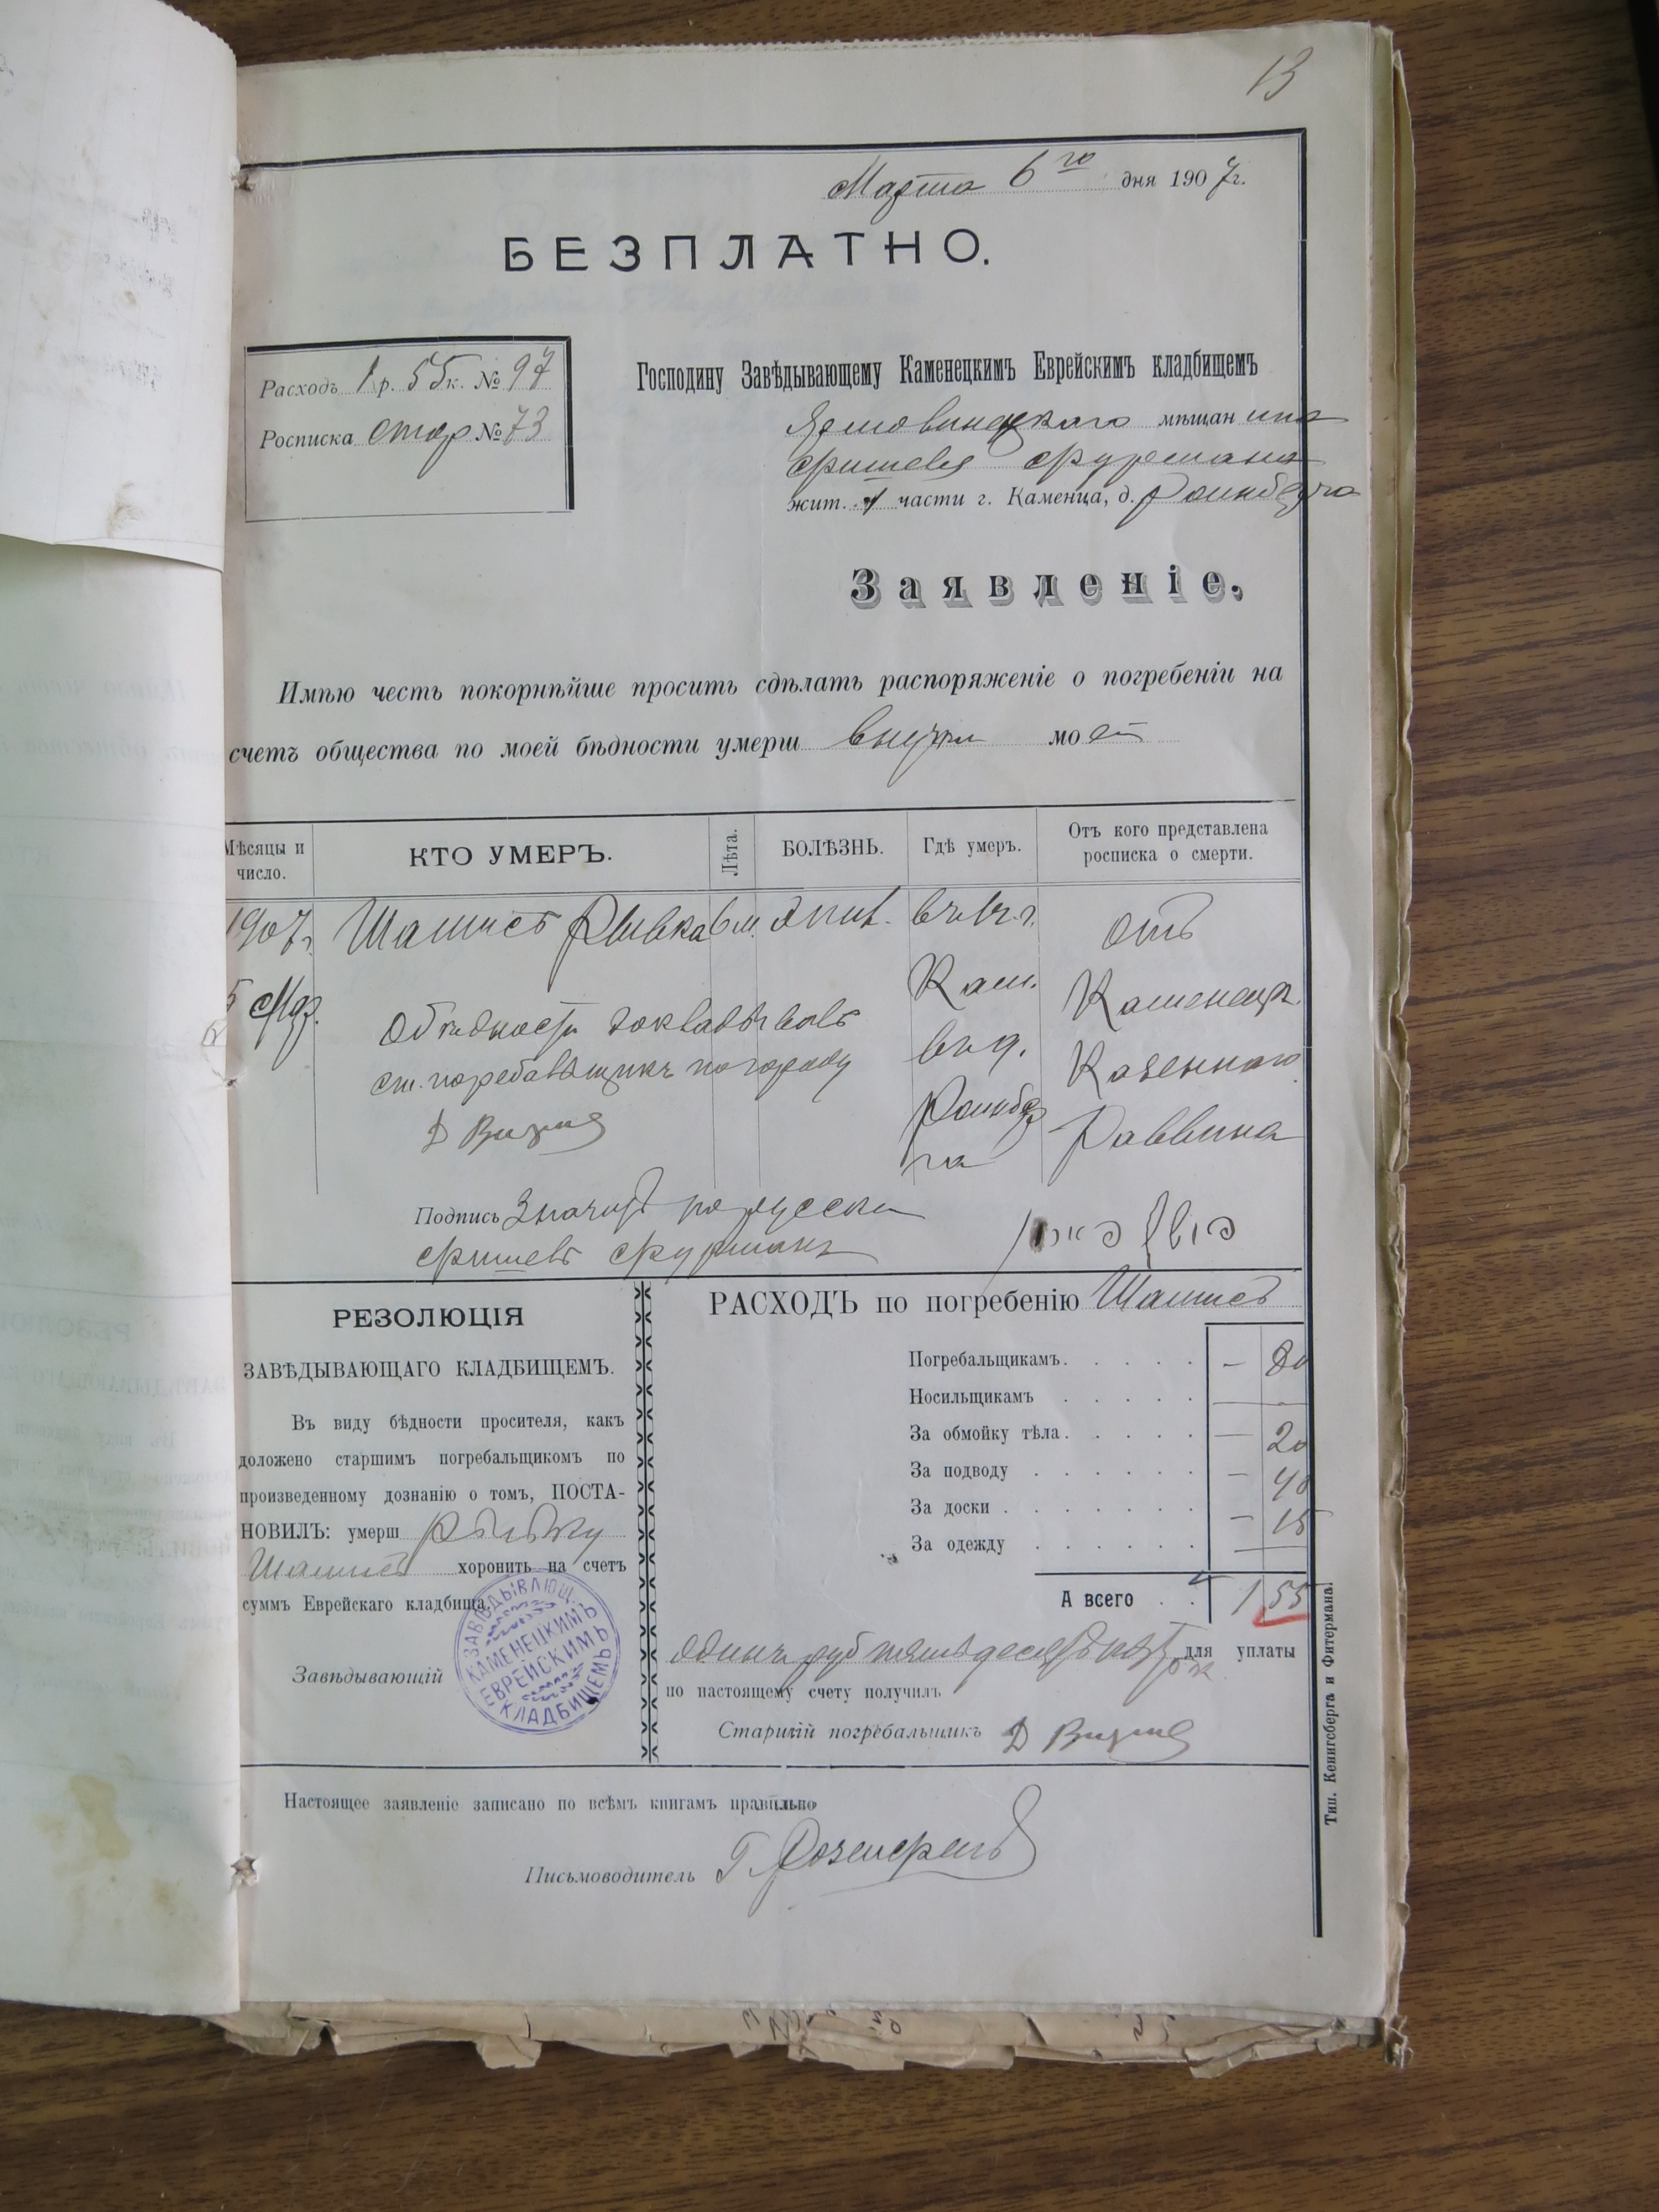 13
Марта 6го дня 1907 г.
БЕЗПЛАТНО.
Расходъ 1 р. 55 к. № 97
Росписка стор № 73
Господину Завѣдывающему Каменецкимъ Еврейскимъ кладбищемъ
мѣщанина
Фишеля Фурмана
жит. 1 части г. Каменца, д. Роинберга
Заявленіе.
Имѣю честь покорнѣйше просить сдѣлать распоряженіе о погребеніи на
счетъ общества по моей бѣдности умерш внучки моей
Мѣсяцы и число.
КТО УМЕРЪ.
Лѣта.
БОЛѢЗНЬ.
Гдѣ умеръ.
Отъ кого представлена росписка о смерти.
1907 г. Шамисъ Рывка 6 м. въ 1 ч. г. отъ
5 Мар. Кам. Каменецк.
О бѣдности докладывалъ въ д. Казеннаго
ст. погребальщикъ по городу Роинбер Раввина
Д Визно га
Подпись Значитъ по русски
Фишель Фурманъ
РЕЗОЛЮЦІЯ
ЗАВѢДЫВАЮЩАГО КЛАДБИЩЕМЪ.
Въ виду бѣдности просителя, какъ
доложено старшимъ погребальщикомъ по
произведенному дознанію о томъ, ПОСТА-
НОВИЛЪ: умерш Рывку
Шамисъ хоронить на счетъ
суммъ Еврейскаго кладбища.
Завѣдывающій
ЗАВѢДЫВАЮЩ.
КАМЕНЕЦКИМЪ
ЕВРЕЙСКИМЪ
КЛАДБИЩЕМЪ
РАСХОДЪ по погребенію Шамисъ
Погребальщикамъ. — 80
Носильщикамъ — -
За обмойку тѣла. — 20
За подводу — 40
За доски — 15
За одежду —
А всего 1 55
Одинъ руб пятьдесятъ пять к для уплаты
по настоящему счету получилъ
Старшій погребальщикъ Д Визно
Настоящее заявленіе записано по всѣмъ книгамъ правильно
Письмоводитель Г. Розенфельд
Тип. Кенигсберга и Фитермана.